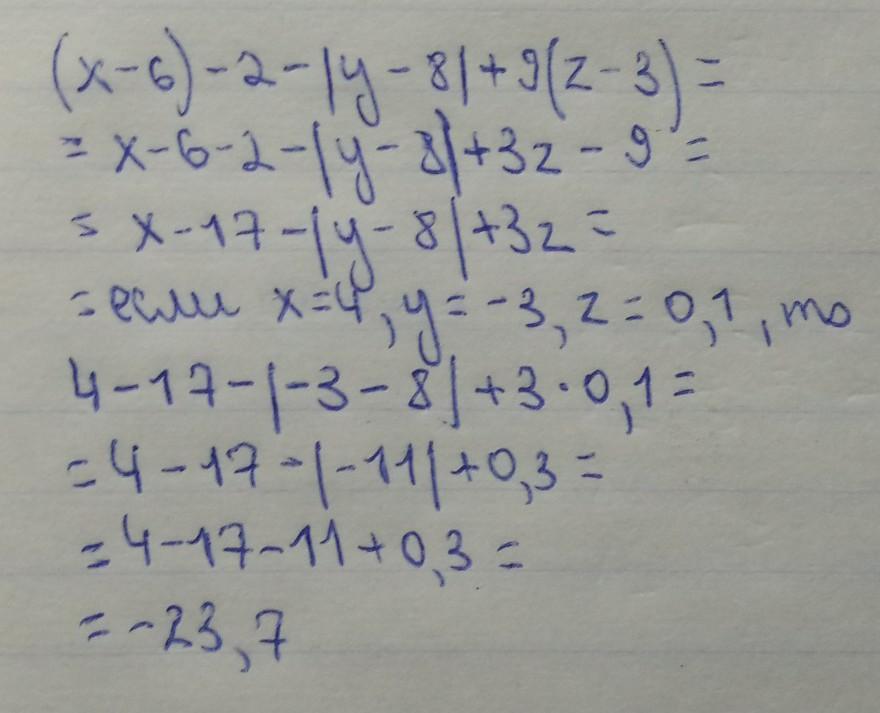 (x-6)-2-|y-8|+9(z-3)=
=x-6-2-|y-8|+3z-9=
=x-17-|y-8|+3z=
=если x=4,y=-3,z=0,1,то
4-17-|-3-8|+3·0,1=
=4-17-|-11|+0,3=
=4-17-11+0,3=
=-23,7